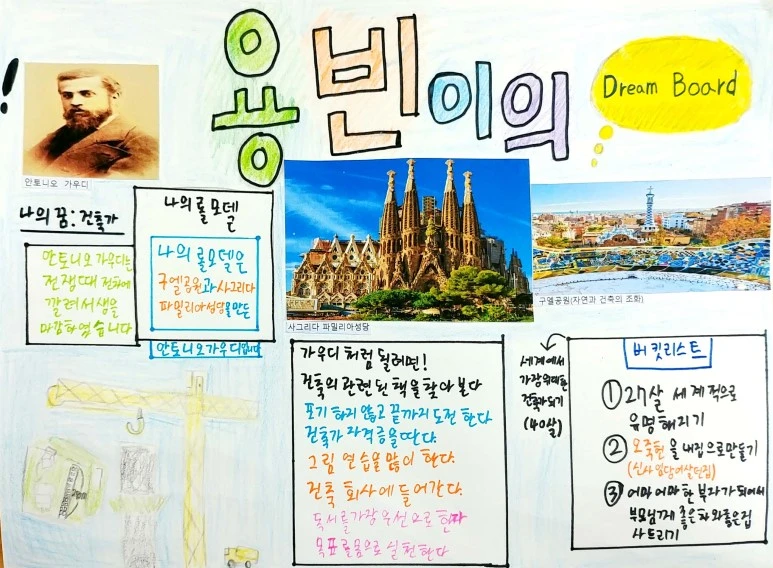 용빈이의
Dream Board
!
안토니오 가우디
나의 꿈: 건축가
안토니오 가우디는
전쟁때 전차에
깔려서 생을
마감하였습니다
나의 롤모델
나의 롤모델은
구엘공원과 사그리다
파밀리아성당을 만든
안토니오가우디입니다
사그리다 파밀리아성당
구엘공원(자연과 건축의 조화)
가우디처럼 될려면!
건축의 관련된 책을 찾아본다
포기하지 않고 끝까지 도전한다
건축가 자격증을 딴다.
그림 연습을 많이 한다.
건축 회사에 들어간다.
독서를 가장 우선으로 한다
목표를 몸으로 실천한다
세계에서
가장 위대한
건축가 되기
(40살)
버킷리스트
① 27살 세계적으로
유명해지기
② 오죽헌을 내집으로만들기
(신사임당이살던집)
③ 어마어마한 부자가 되어서
부모님께 좋은차와좋은집
사드리기